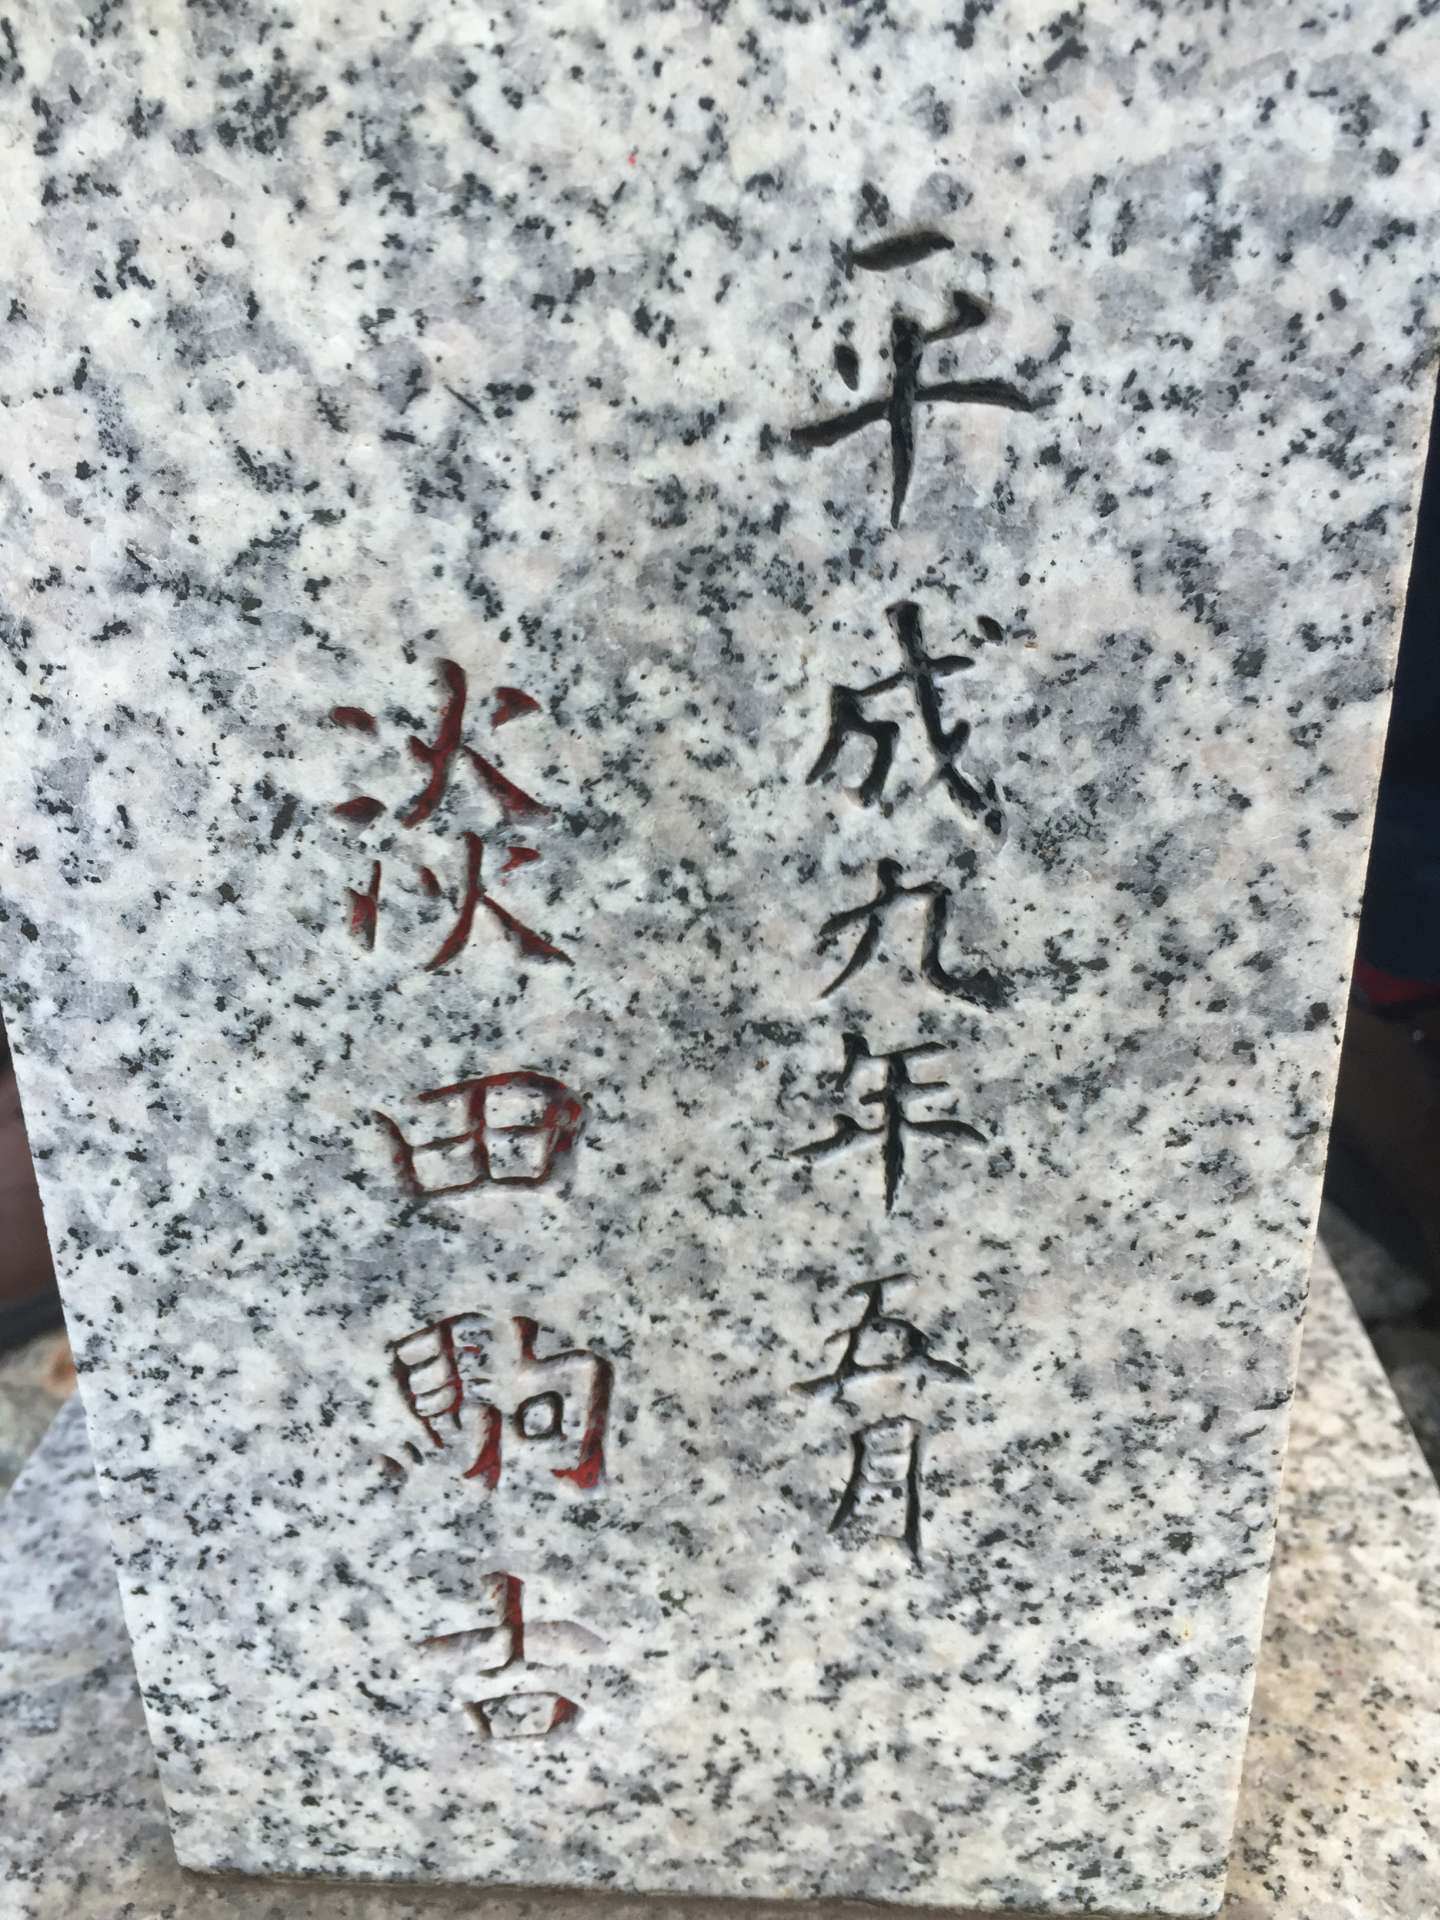 平成九年五月
淡田駒吉